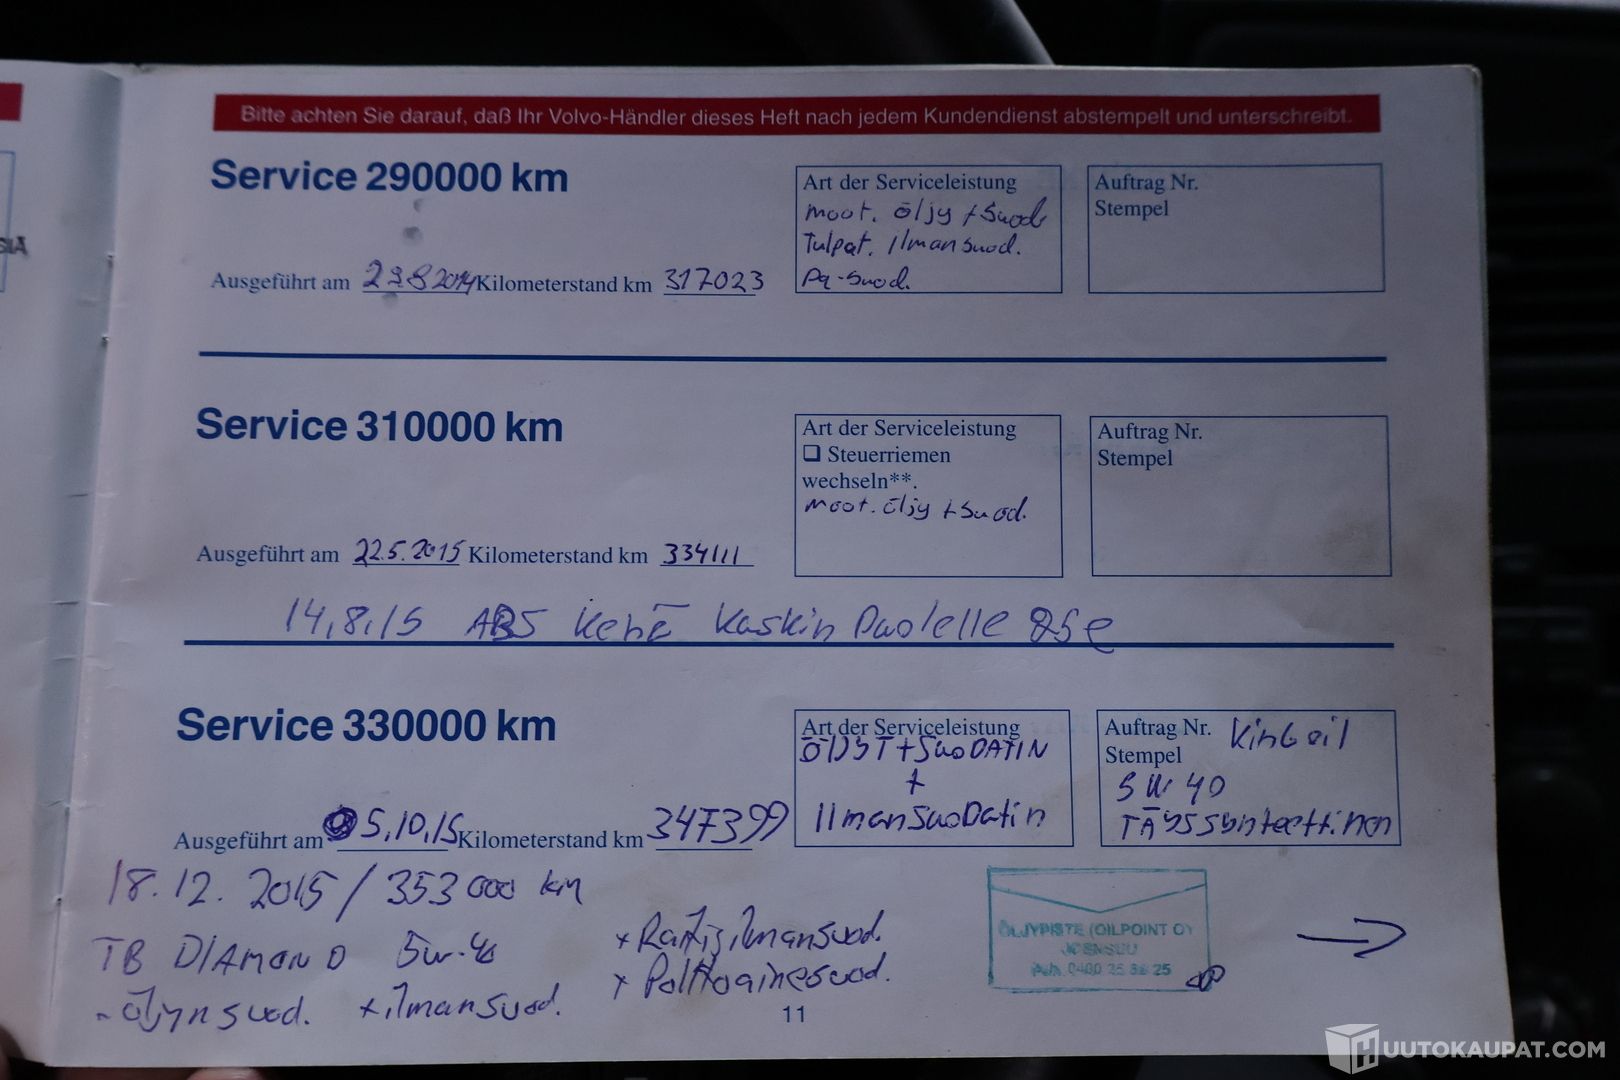 SIA
Bitte achten Sie darauf, daß Ihr Volvo-Händler dieses Heft nach jedem Kundendienst abstempelt und unterschreibt.
Service 290000 km
Art der Serviceleistung
moot. öljy + Suod
Tulpat. Ilmansuod.
Pa-Suod.
Auftrag Nr.
Stempel
Ausgeführt am 29.8.2014 Kilometerstand km 317023
Service 310000 km
Art der Serviceleistung
❑ Steuerriemen
wechseln**.
moot. öljy + Suod.
Auftrag Nr.
Stempel
Ausgeführt am 22.5.2015 Kilometerstand km 334111
14,8,15 ABS Kehä Kaskin Puolelle
Service 330000 km
Art der Serviceleistung
ÖLJYT + SuoDATIN
+
IlmanSuoDatin
Auftrag Nr.
Stempel
5W40
TÄYSSynteettinen
Ausgeführt am 5,10,15 Kilometerstand km 347399
18.12.2015 / 353000 km
TB DIAMOND 5w-40
- öljynsuod. + ilmansuod.
+ Raitisilmansuod.
+ Polttoainesuod.
ÖLJYPISTE (OILPOINT OY
JOENSUU
Puh. 0400 25 86 25
11
UUTOKAUPAT.COM